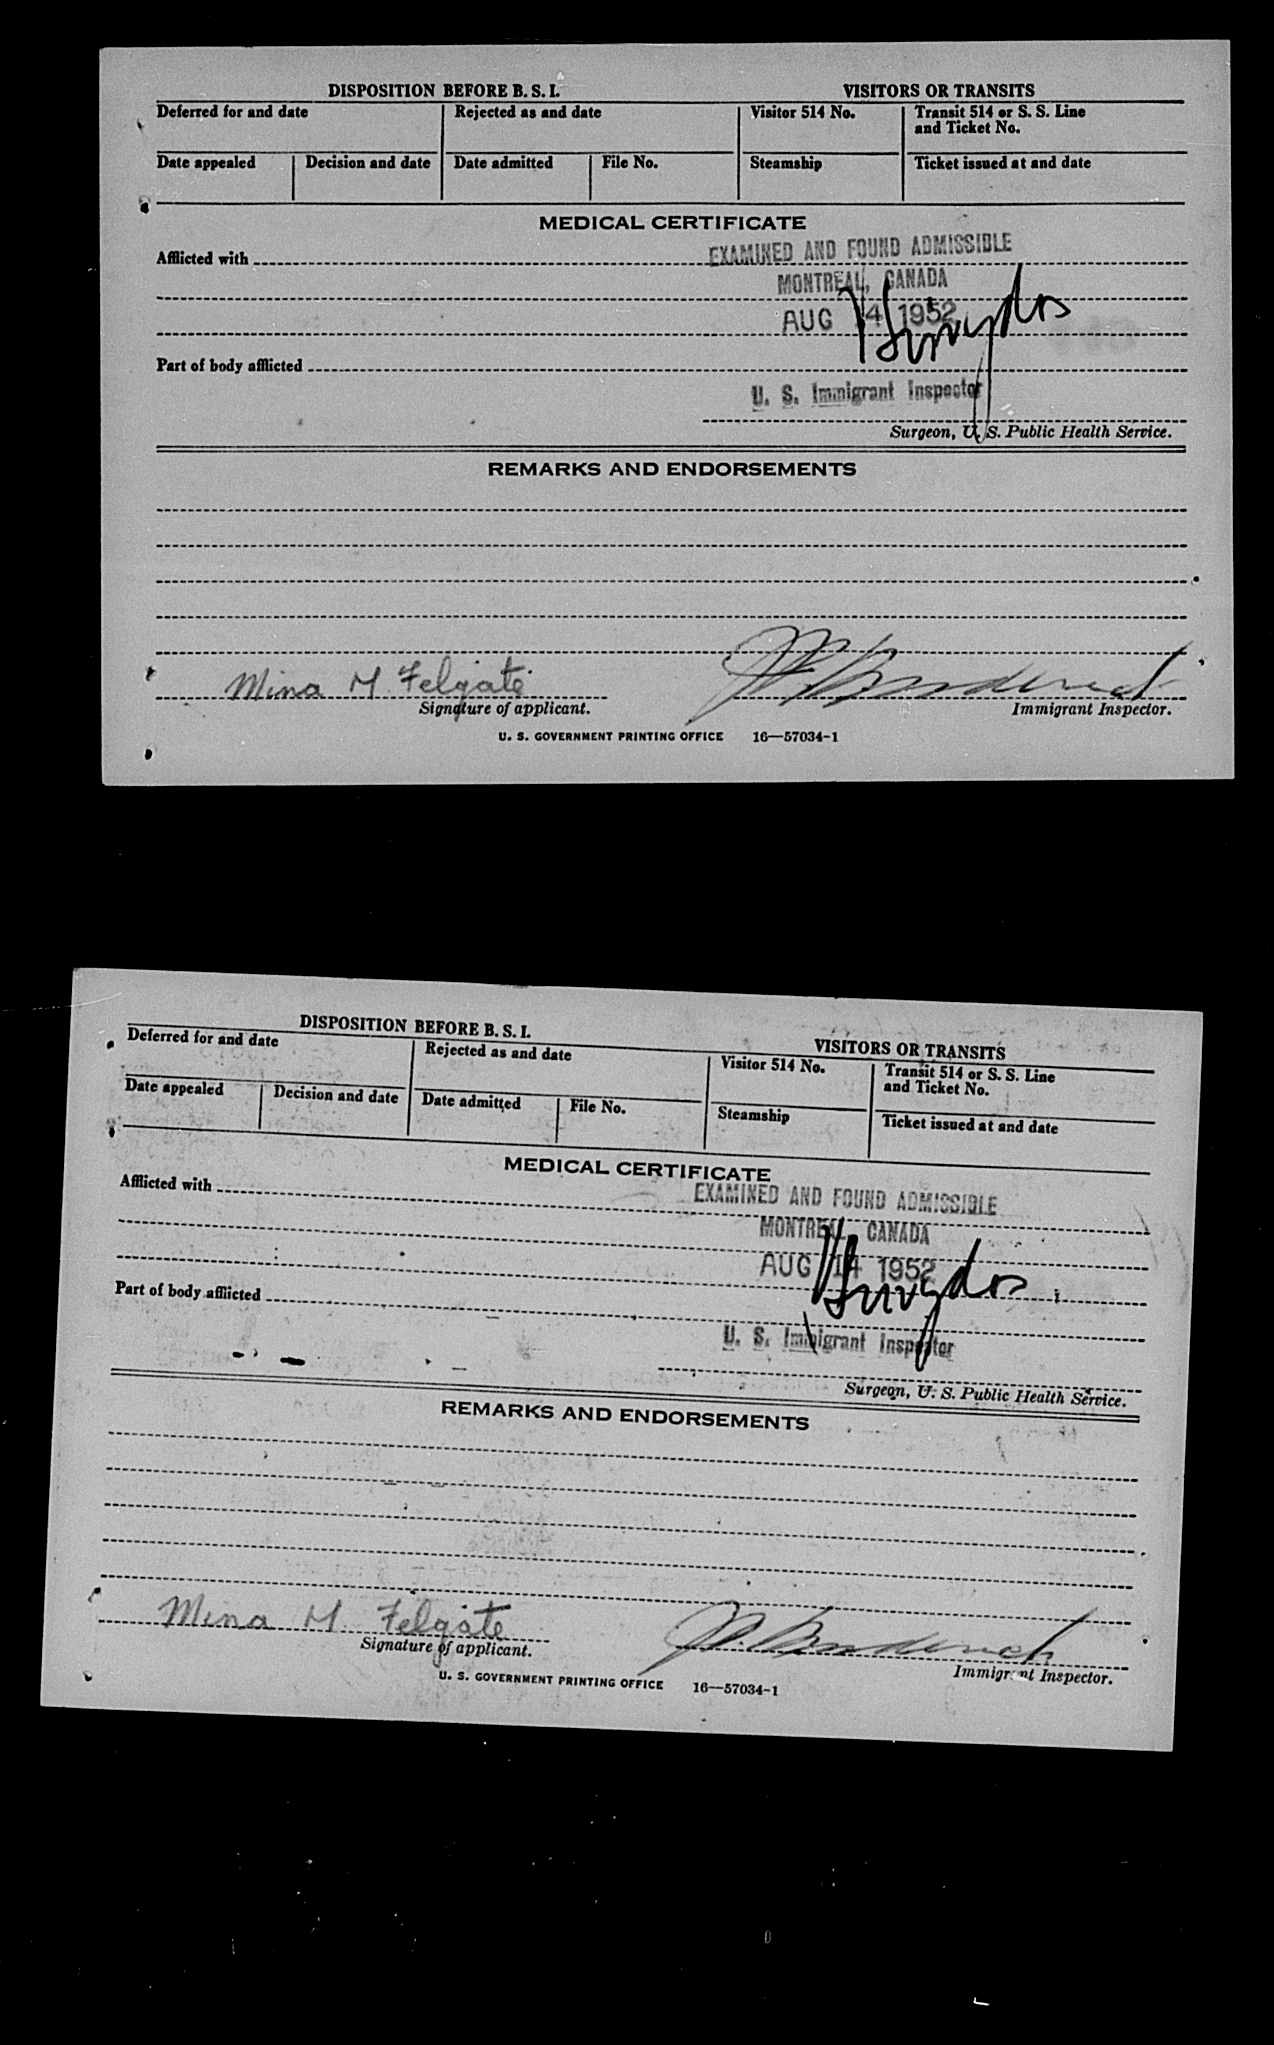 DISPOSITION BEFORE B. S. I.
VISITORS OR TRANSITS
Deferred for and date
Rejected as and date
Visitor 514 No.
Transit 514 or S. S. Line
and Ticket No.
Date appealed
Decision and date
Date admitted
File No.
Steamship
Ticket issued at and date
MEDICAL CERTIFICATE
Afflicted with
EXAMINED AND FOUND ADMISSIBLE
MONTREAL, CANADA
AUG 14 1952
Part of body afflicted
U. S. Immigrant Inspector
Surgeon, U. S. Public Health Service.
REMARKS AND ENDORSEMENTS
Mina M. Felgate
Signature of applicant.
Immigrant Inspector.
U. S. GOVERNMENT PRINTING OFFICE 16—57034-1
DISPOSITION BEFORE B. S. I.
VISITORS OR TRANSITS
Deferred for and date
Rejected as and date
Visitor 514 No.
Transit 514 or S. S. Line
and Ticket No.
Date appealed
Decision and date
Date admitted
File No.
Steamship
Ticket issued at and date
MEDICAL CERTIFICATE
Afflicted with
EXAMINED AND FOUND ADMISSIBLE
MONTREAL, CANADA
AUG 14 1952
Part of body afflicted
U. S. Immigrant Inspector
Surgeon, U. S. Public Health Service.
REMARKS AND ENDORSEMENTS
Mina M. Felgate
Signature of applicant.
Immigrant Inspector.
U. S. GOVERNMENT PRINTING OFFICE 16—57034-1